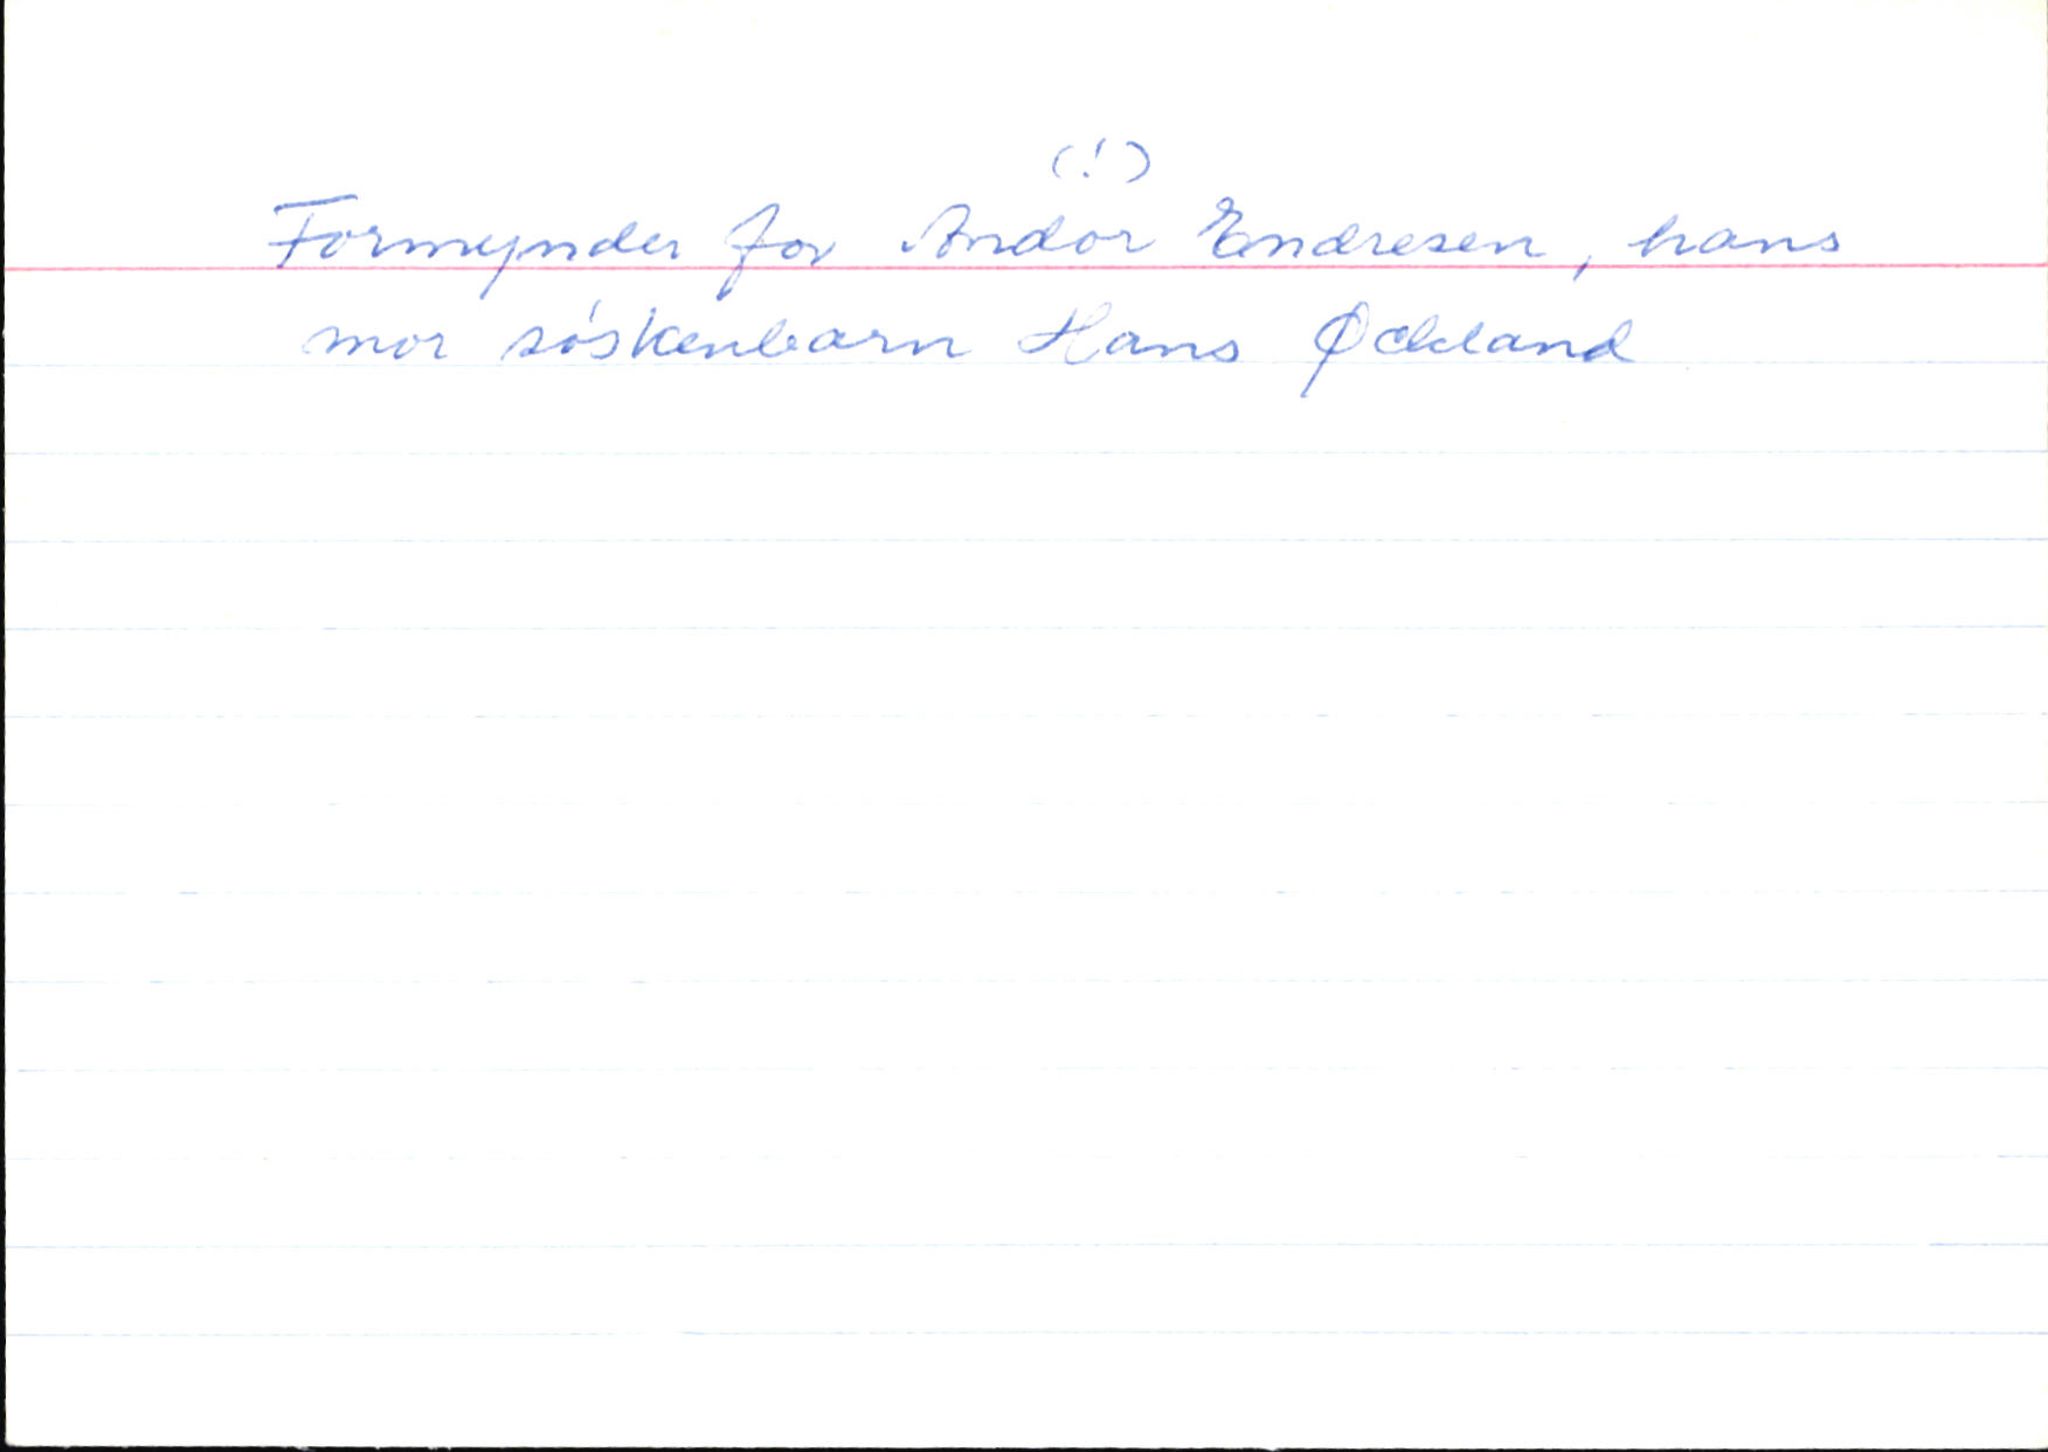 (!)
Formynder for Andor Endresen, hans
mor søskenbarn Hans Øckland